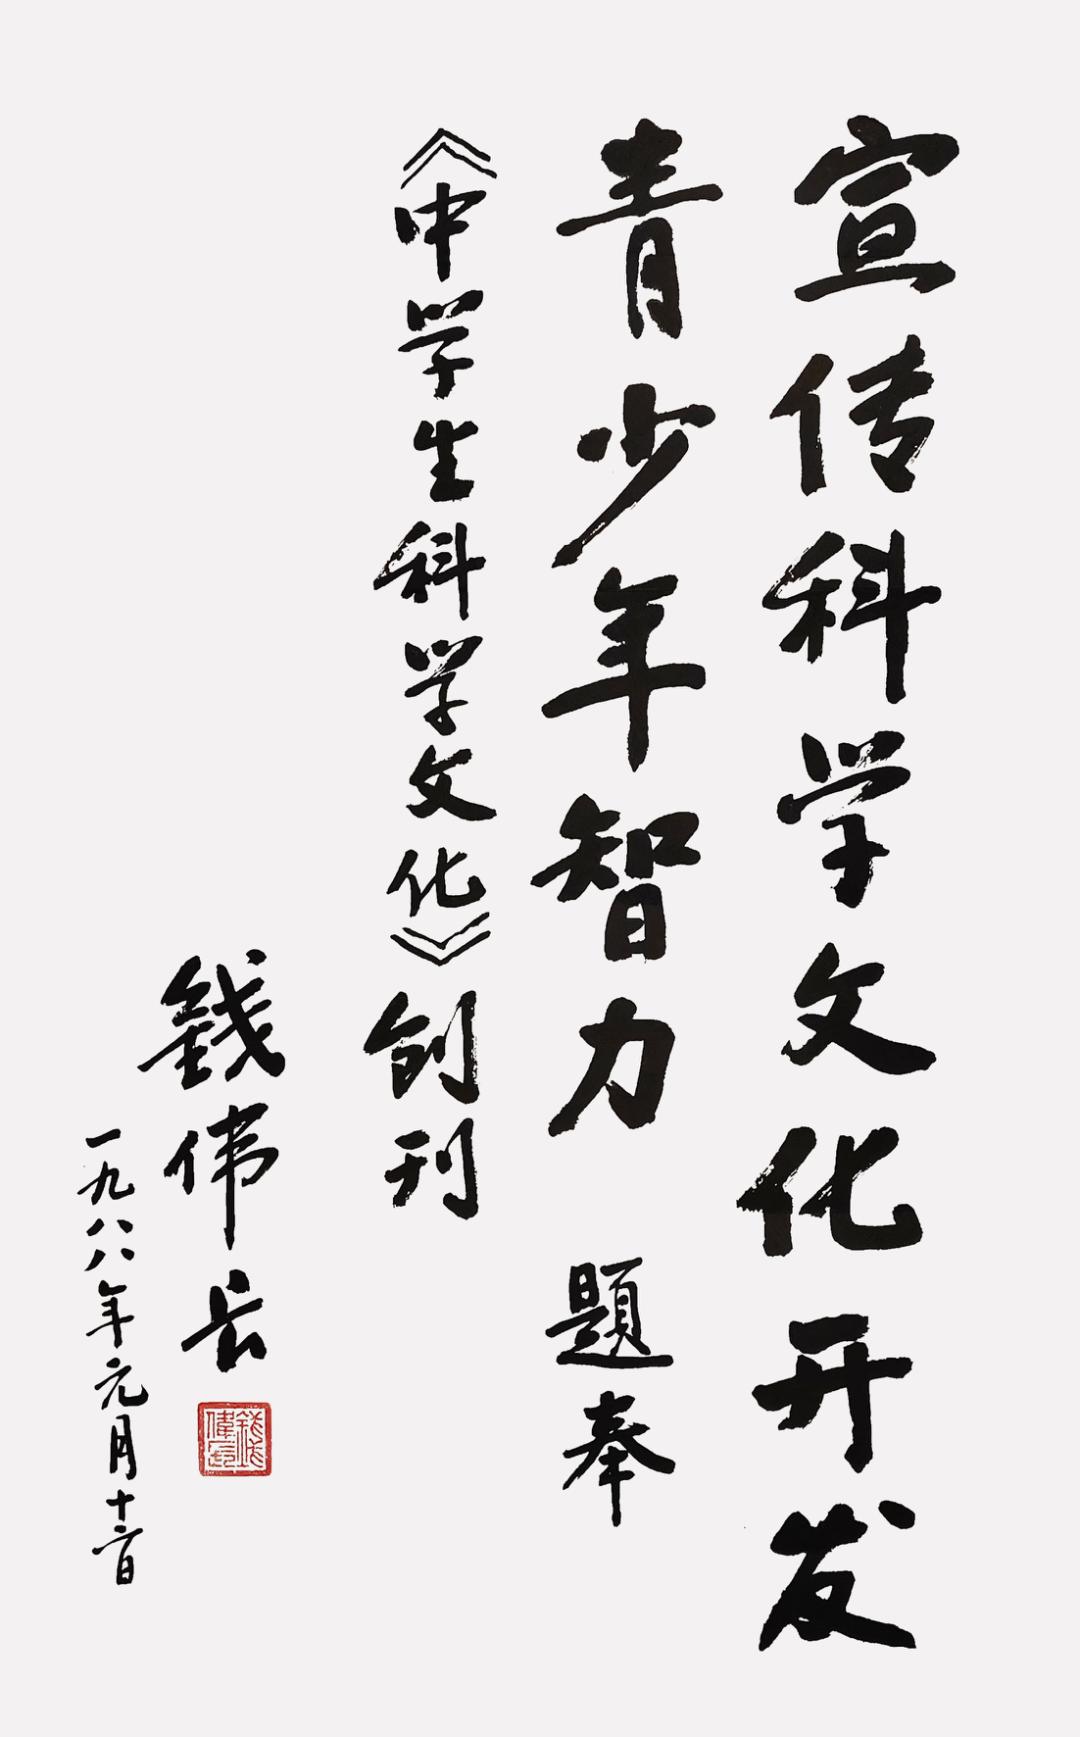 宣传科学文化开发
青少年智力 题奉
《中学生科学文化》创刊
錢伟长
一九八八年元月十二日